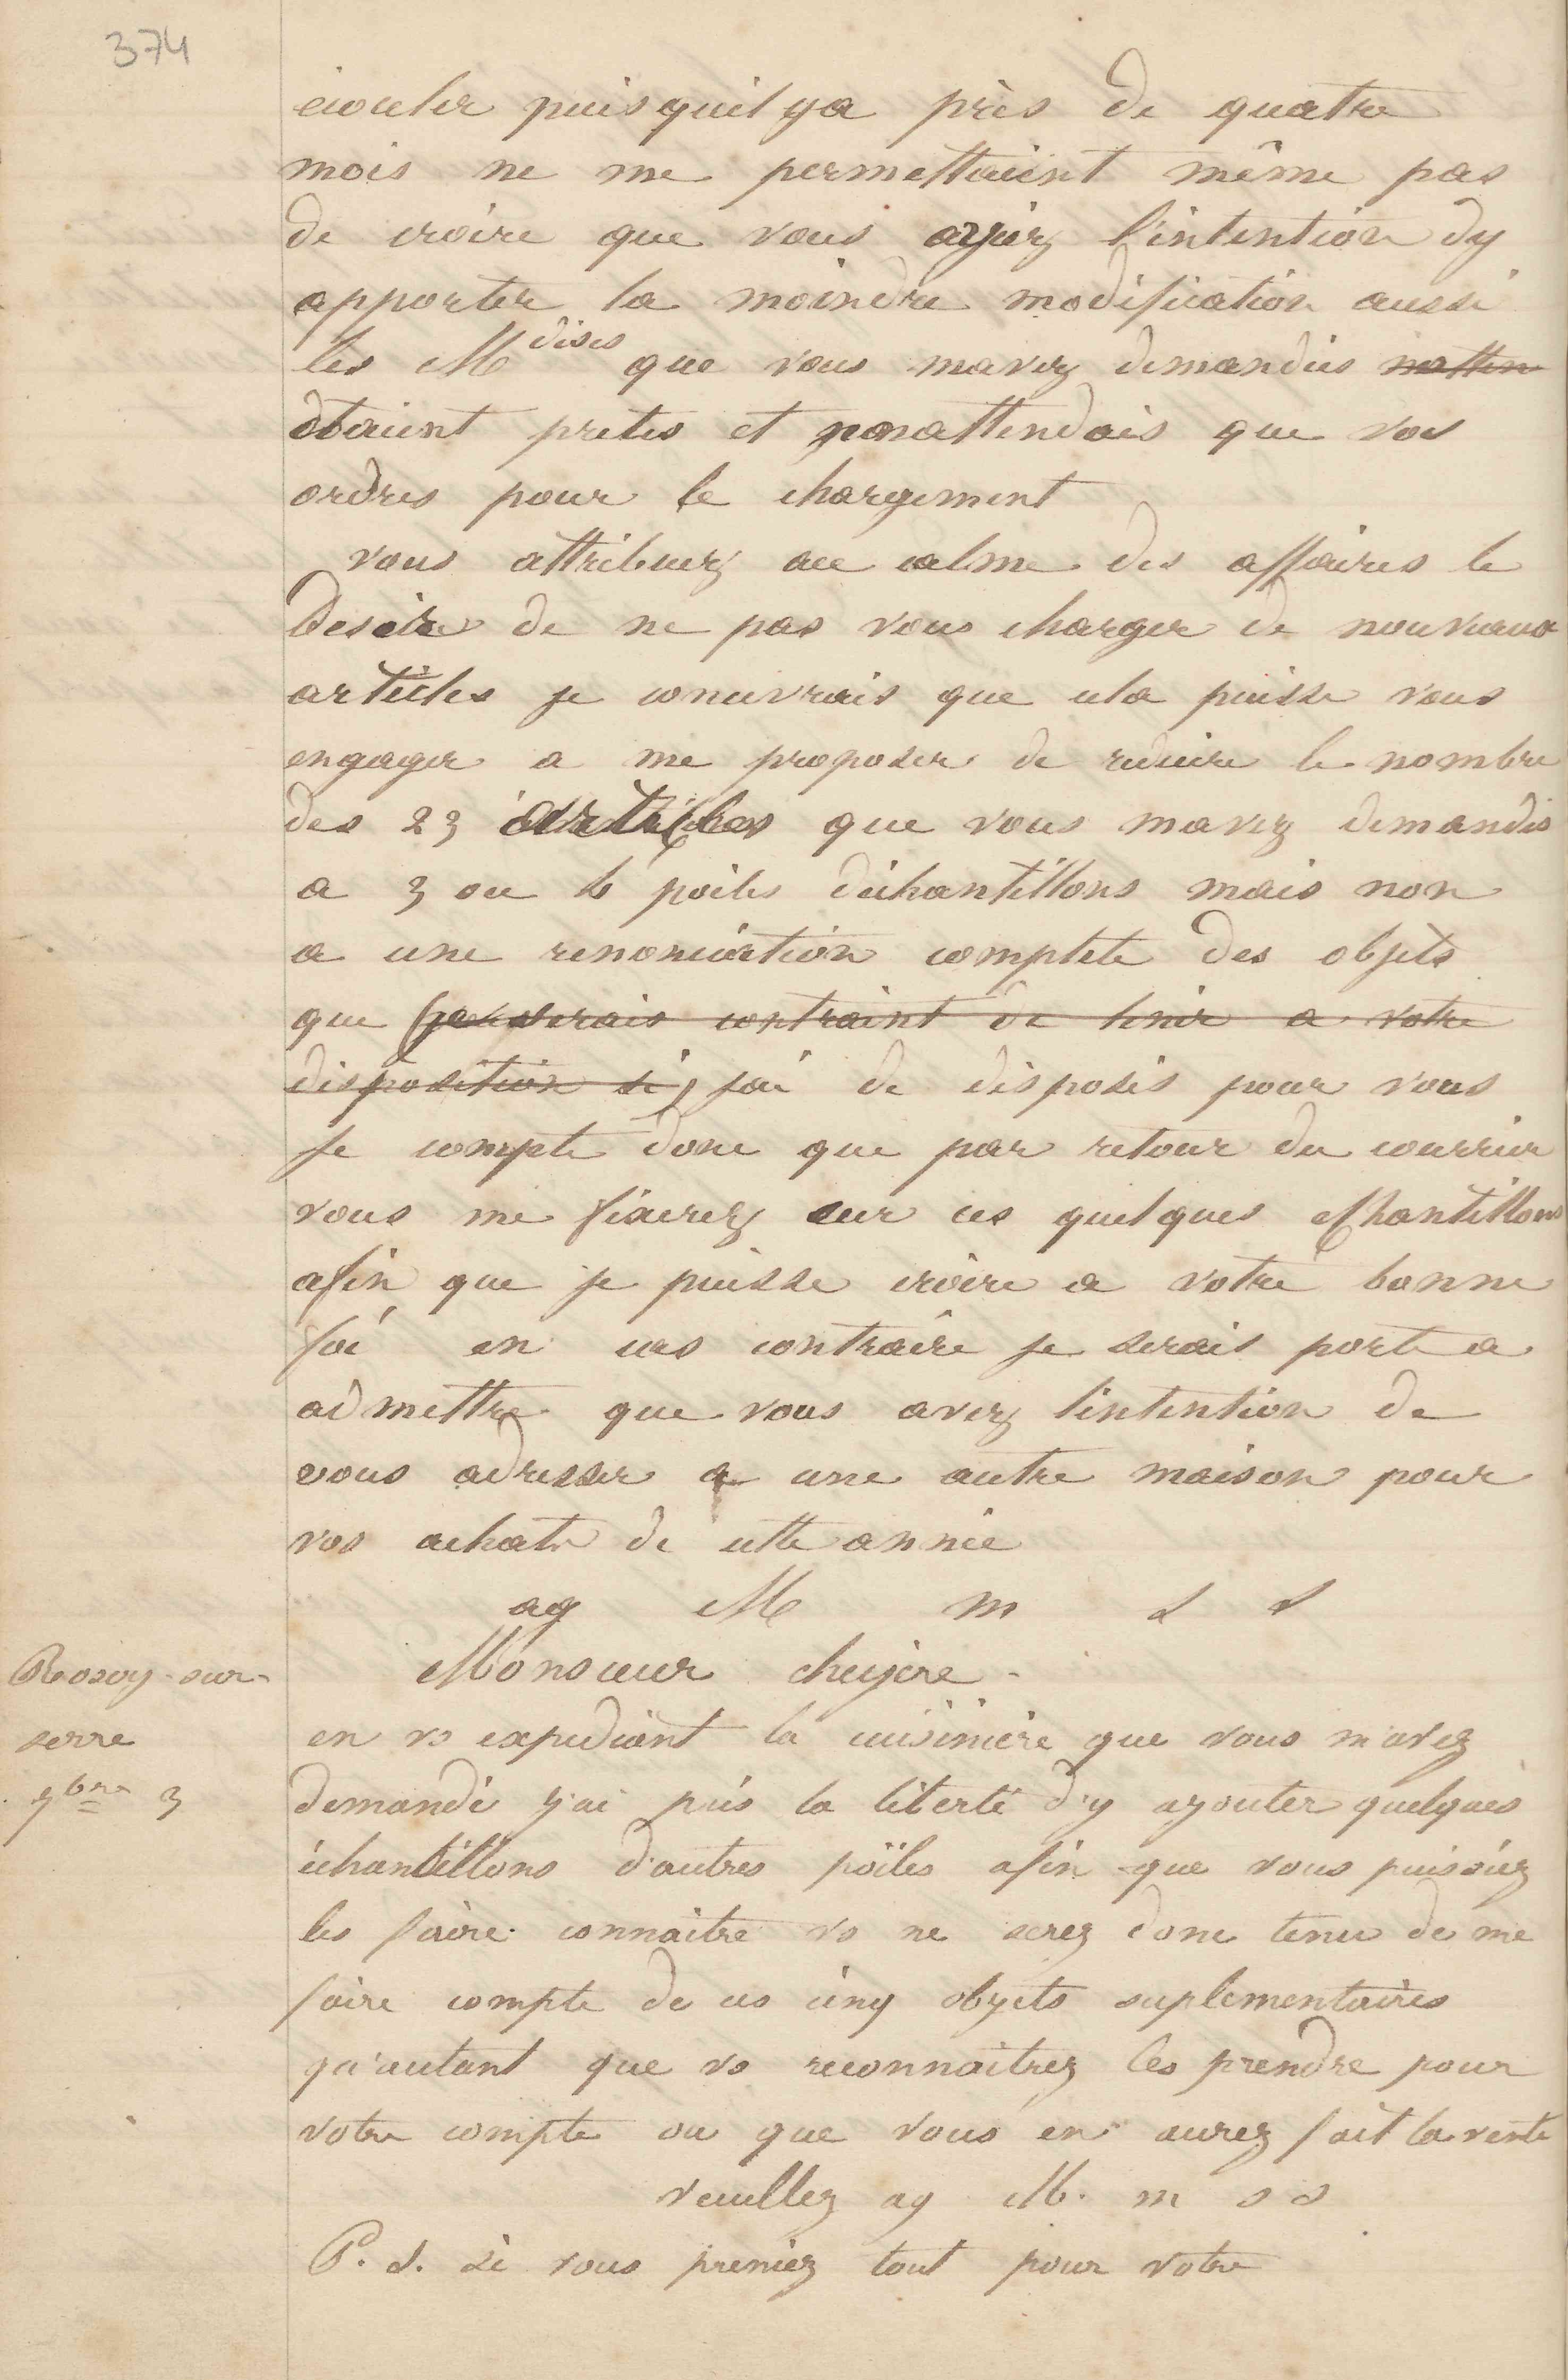 374
écouler puisquil ya près de quatre
mois ne me permettaient même pas
de croire que vous ayiez l'intention dy
apporter la moindre modification aussi
les Mdises que vous mavez demandées natten
étaient pretes et nonattendais que vos
ordres pour le chargement
vous attribuez au calme des affaires le
desire de ne pas vous charger de nouveaux
articles je concevrais que cela puisse vous
engager a me proposer de reduire le nombre
des 23 articles que vous mavez demandés
a 3 ou 4 poêles déchantillons mais non
a une renonciation complete des objets
que je serais contraint de tenir a votre
disposition si, jai de disposés pour vous
Je compte donc que par retour du courrier
vous me fixerez sur ces quelques echantillons
afin que je puisse croire a votre bonne
foi en cas contraire je serais porté a
admettre que vous avez lintention de
vous adresser a une autre maison pour
vos achats de cette année
ag M m s s
Rosoy-sur-
serre
9bre 3
Monsieur
en vs expediant la cuisinière que vous m'avez
demandé j'ai pris la liberté d'y ajouter quelques
échantillons d'autres poïles afin que vous puissiez
les faire connaitre vs ne serez donc tenu de me
faire compte de ces cinq objets suplementaires
qu'autant que vs reconnaitrez les prendre pour
votre compte ou que vous en aurez fait la vente
veuillez ag M. m s s
P. S. Si vous preniez tout pour votre